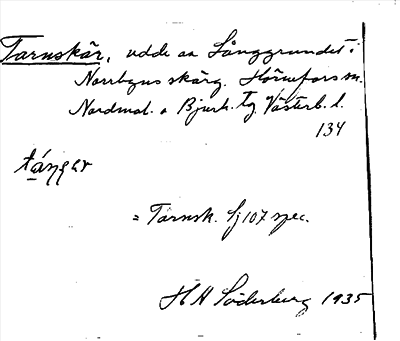 Tarnskär, udde av Långgrundet i
Norrbyns skärg. Hörnefors sn.
Nordmal. o Bjurh. tg Västerb. l.
134
tánger
= Tärnsk. Sj 107 spec.
H H Söderberg 1935